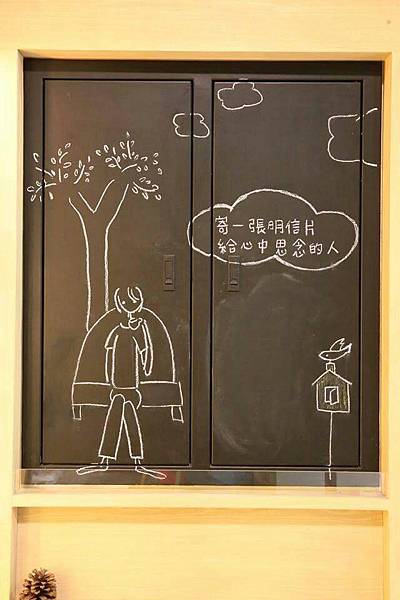 寄一張明信片
給心中思念的人